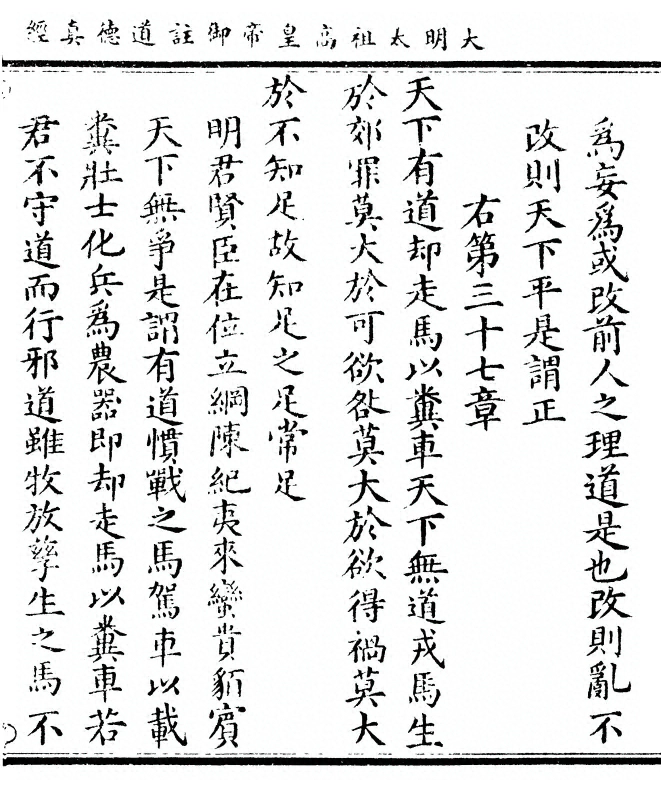 大明太祖高皇帝御註道德真經
為妄為或改前人之理道是也改則亂不
改則天下平是謂正
右第三十七章
天下有道却走馬以糞車天下無道戎馬生
於郊罪莫大於可欲咎莫大於欲得禍莫大
於不知足故知足之足常足
明君賢臣在位立綱陳紀夷來蠻貴貊賓
天下無爭是謂有道慣戰之馬駕車以載
糞壯士化兵為農器即却走馬以糞車若
君不守道而行邪道雖牧放孳生之馬不